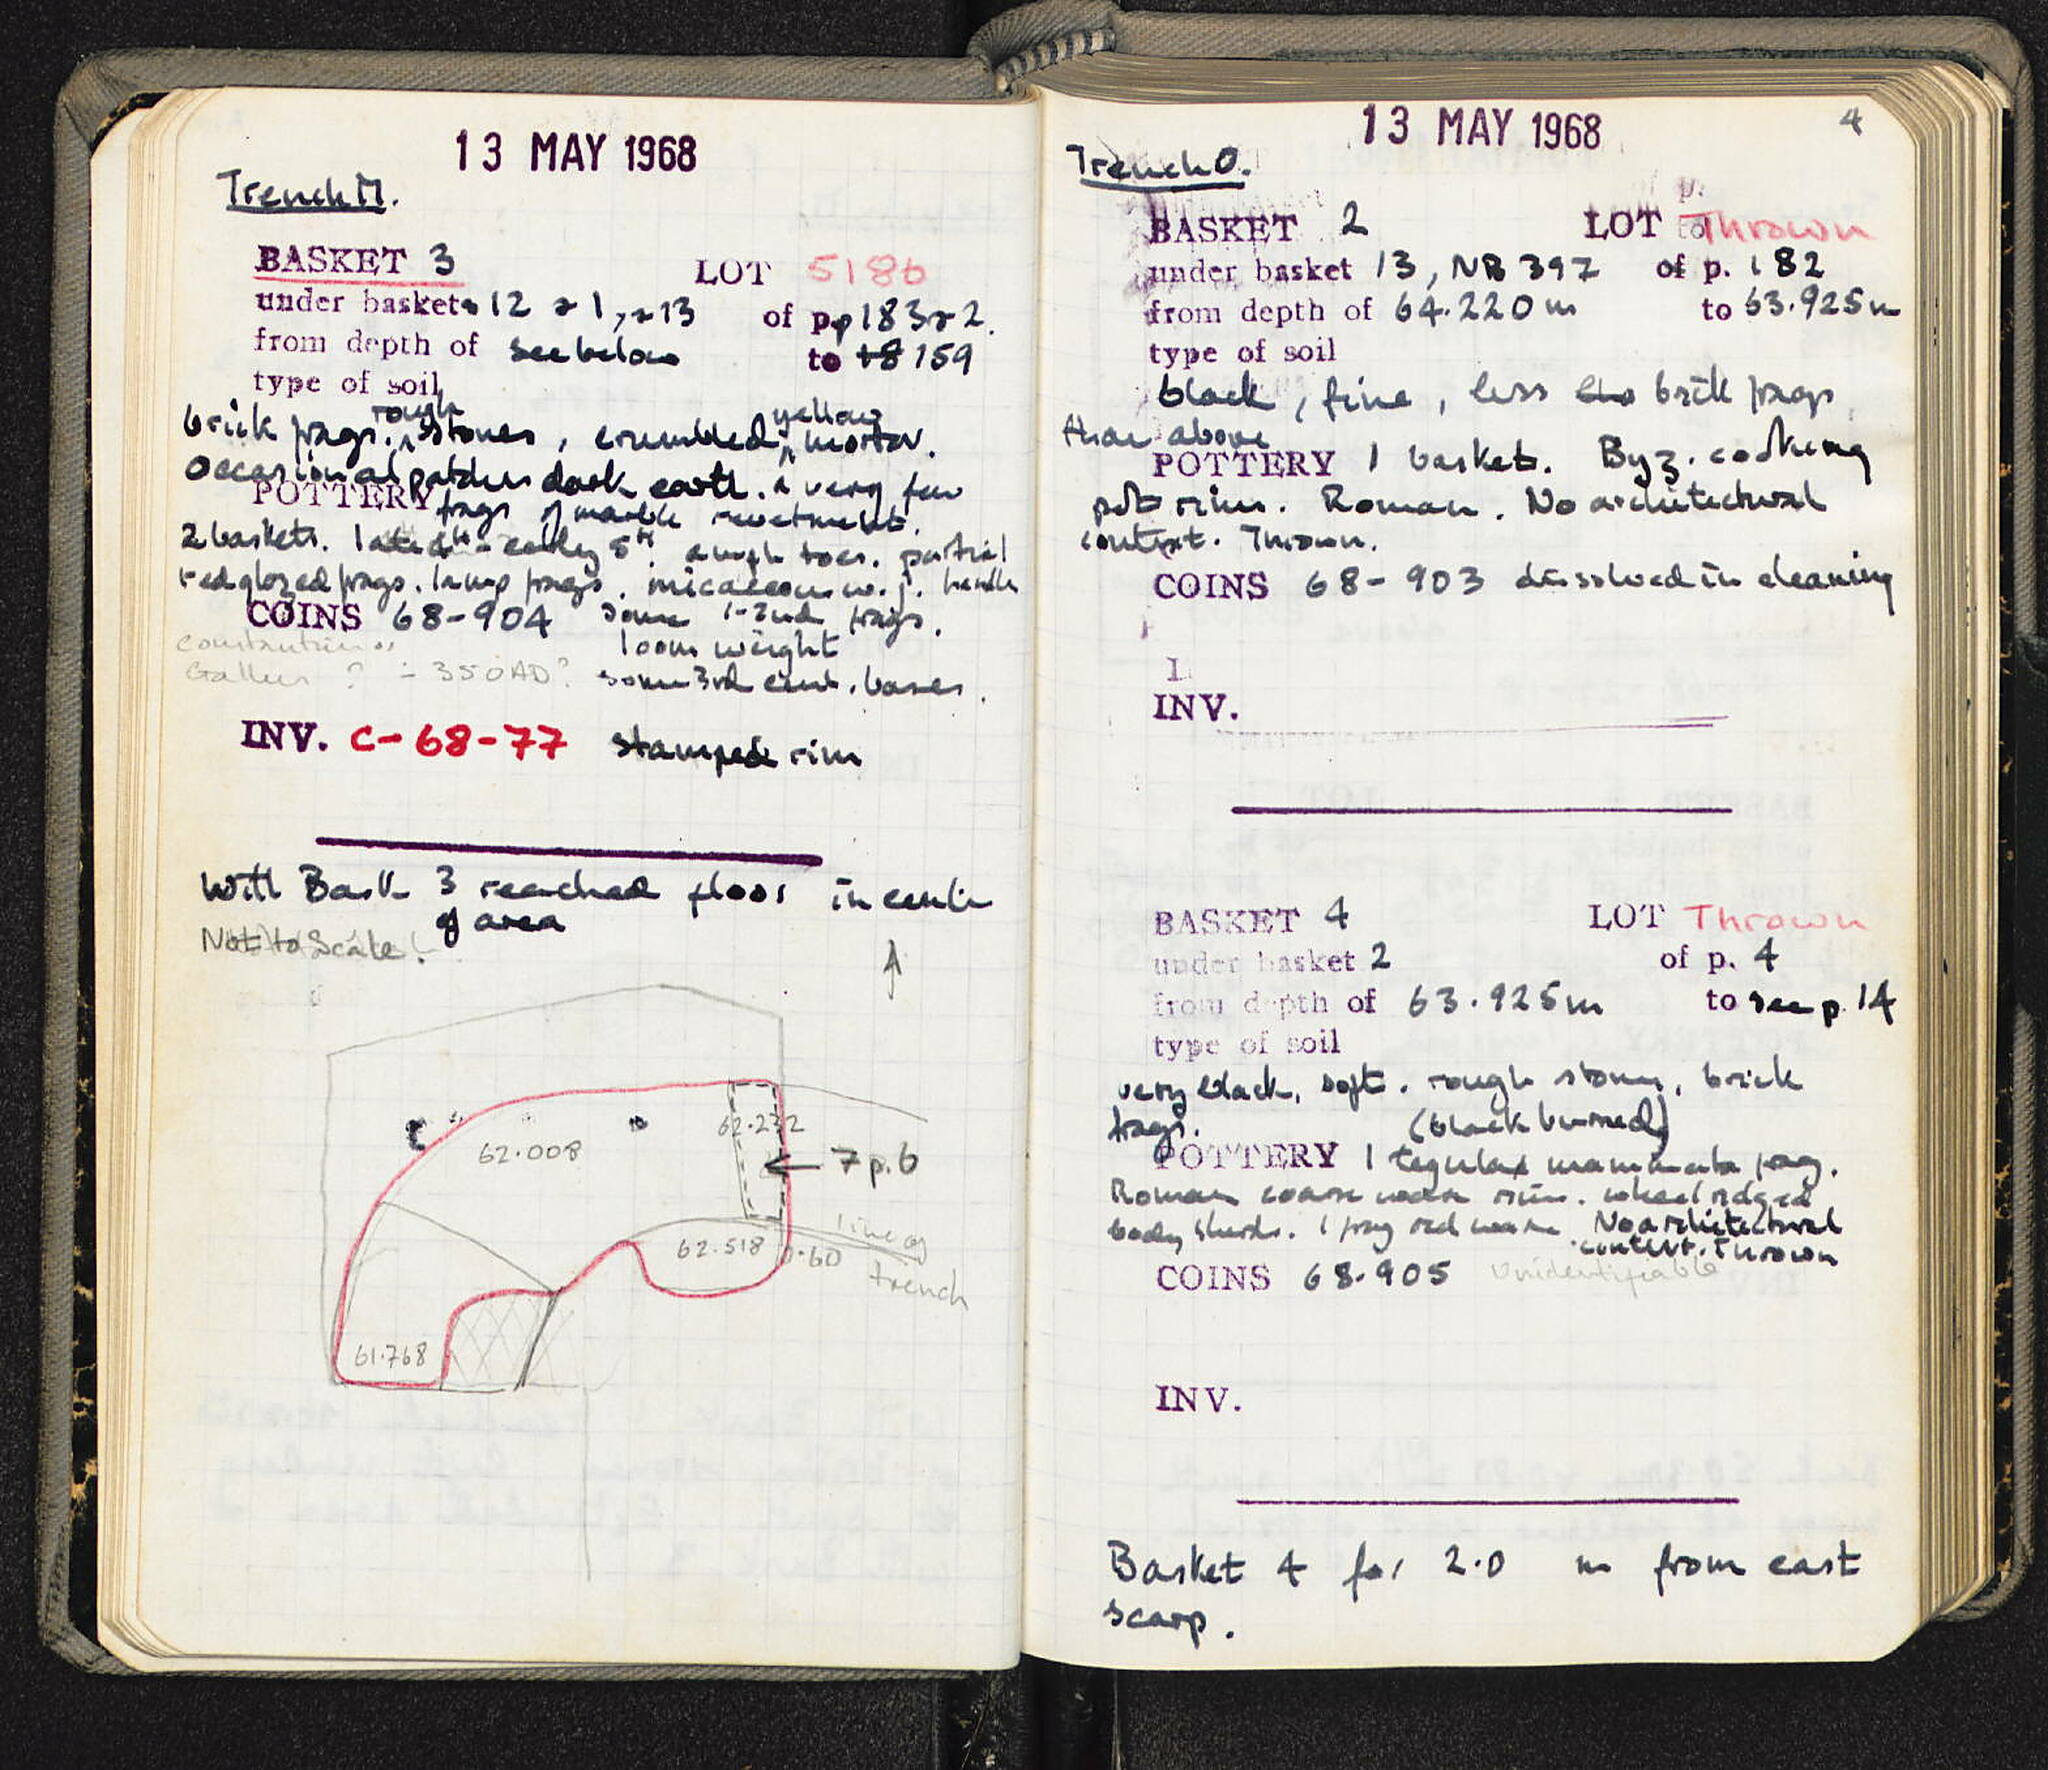 13 MAY 1968
Trench M.
BASKET 3 LOT 5186
under baskets 12 & 1, & 13 of pp 183 & 2.
from depth of see below to 159
type of soil
brick frags. rough stones, crumbled yellow mortar.
Occasional patches dark earth. A very few
POTTERY frags of marble revetment.
2 baskets. late 4th - early 5th. amph toes. partial
red glazed frags. lamp frags. micaceous w. j. handle
COINS 68-904 some 1-2nd frags.
Constantinus loom weight
Gallus ? ± 350AD? some 3rd cent. bases.
INV. C-68-77 stamped rim
With Bask 3 reached floor in centre
of area
Not to Scale.
62.008
62.232
7 p. 6
62.518
0.60
line of
trench
61.768
13 MAY 1968
4
Trench O.
BASKET 2 LOT Thrown
under basket 13, NB 397 of p. 182
from depth of 64.220m to 63.925m
type of soil
black, fine, less brick frags
than above
POTTERY 1 basket. Byz. cooking
pot rims. Roman. No architectural
context. Thrown.
COINS 68-903 dissolved in cleaning
INV.
BASKET 4 LOT Thrown
under basket 2 of p. 4
from depth of 63.925m to see p. 14
type of soil
very black, soft. rough stones, brick
frags. (black burned)
POTTERY 1 tegula mammata frag.
Roman coarse ware rim. wheel ridged
body sherds. 1 frag red ware. No architectural
context. Thrown
COINS 68.905 Unidentifiable
INV.
Basket 4 for 2.0 m from east
scarp.